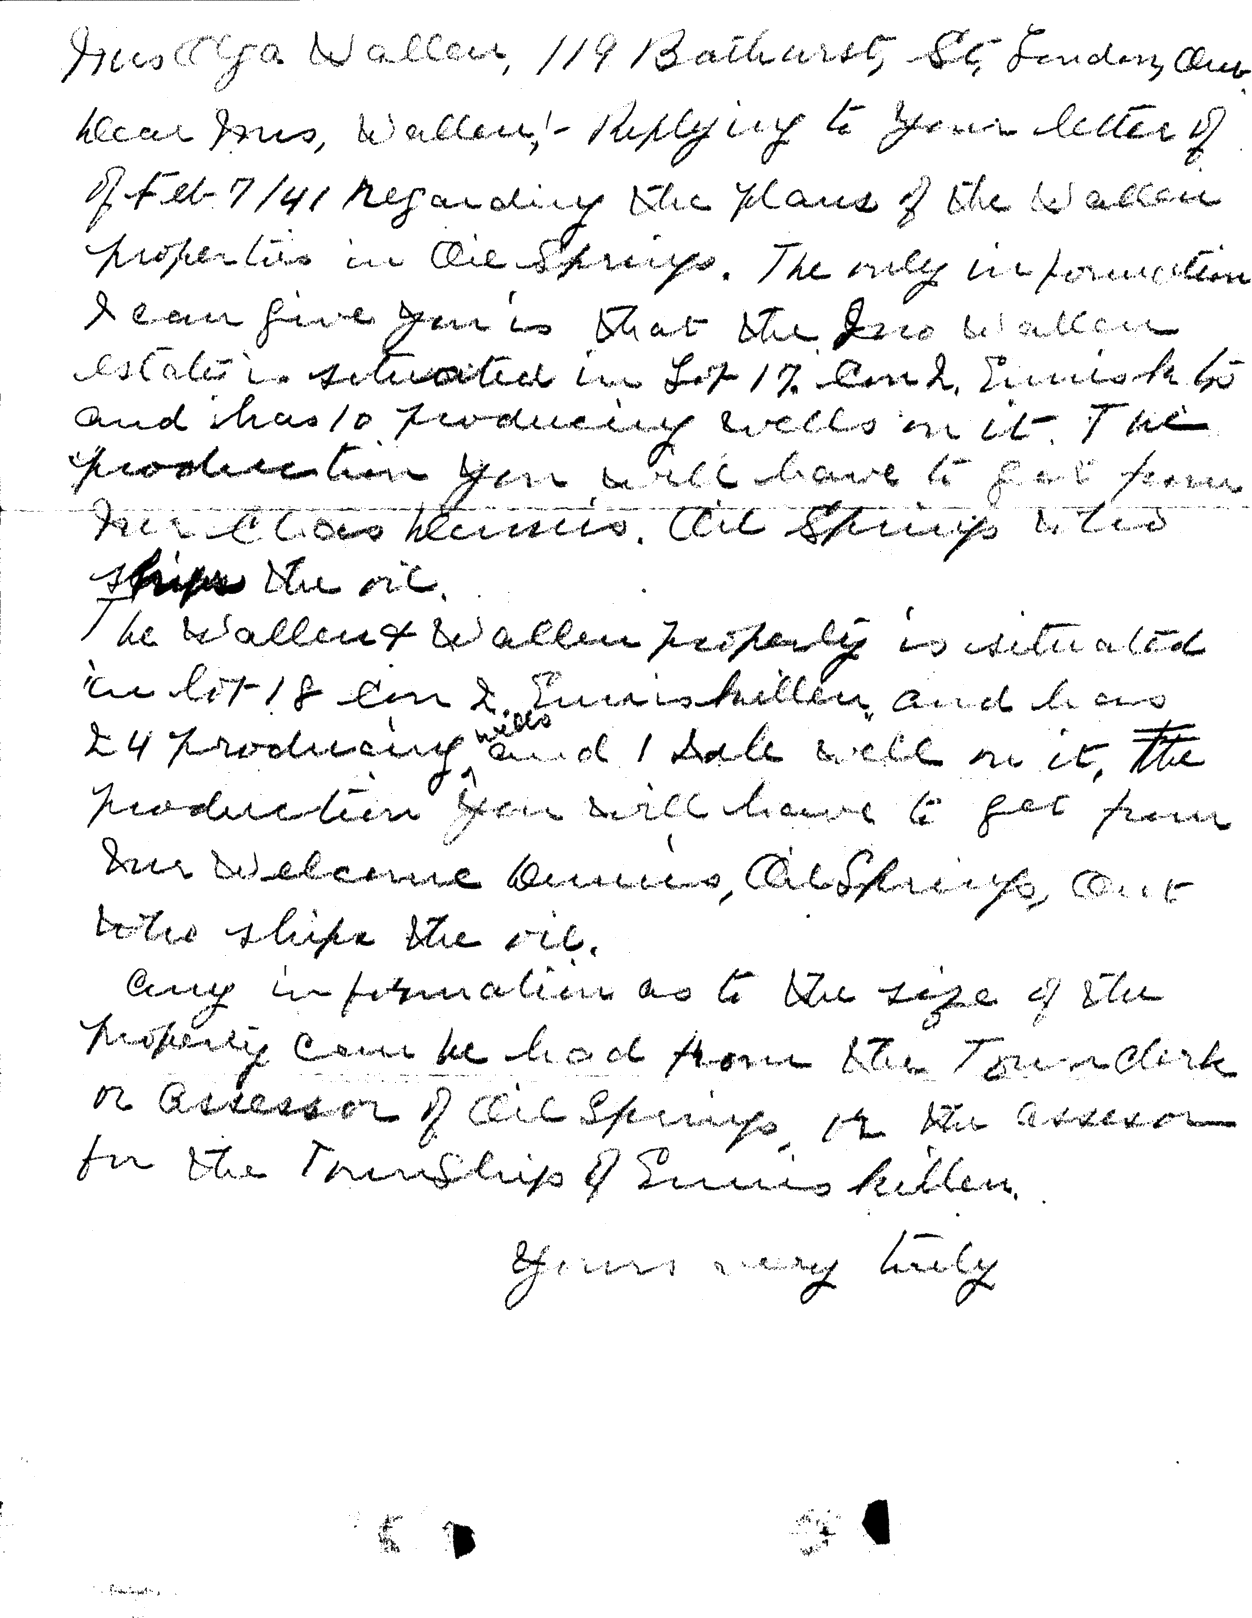 Mrs Olga Wallen, 119 Bathurst, St, London, Ont.
Dear Mrs, Wallen,!- Replying to your letter of
of Feb 7/41 regarding the plans of the Wallen
properties in Oil Springs. The only information
I can give you is that the Jno Wallen
estate is situated in Lot 17. Con 2, Ennisk to
and has 10 producing wells on it. The
production you will have to get from
Mr Chas Dennis. Oil Springs who
ships the oil.
The Wallen & Wallen property is situated
in lot 18 Con 2. Enniskillen, and has
24 producing wells and 1 salt well on it, The
production you will have to get from
Mr Welcome Dennis, Oil Springs, Ont
who ships the oil.
Any information as to the size of the
property can be had from the Town Clerk
or Assessor of Oil Springs, or the assesor
for the TownShip of Enniskillen.
Yours very truly